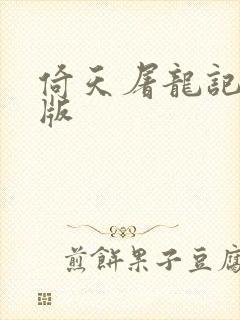 倚天屠龍記
版
煎餅果子豆腐